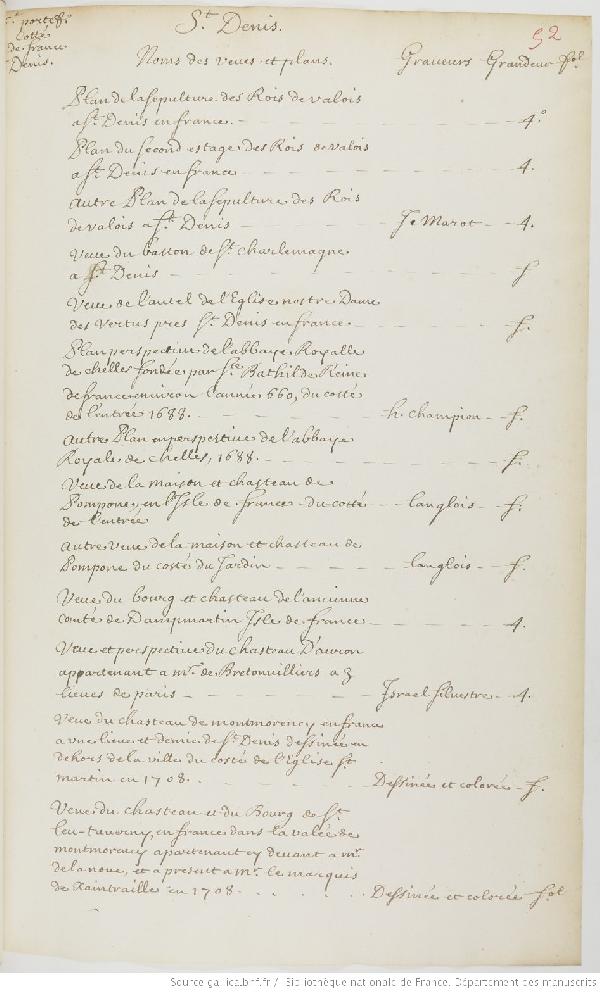 St. Denis.
52
portef.
Cotté
de france
Denis.
Noms des veues et plans. Graveurs Grandeur fol
Plan de la sepulture des Rois de valois
a St. Denis en france. 4.o
Plan du second estage des Rois de valois
a St. Denis en france 4.
autre Plan de la sepulture des Rois
de valois a St. Denis Je Marot 4.
Veue du baston de St. Charlemagne
a St. Denis f
Veue de l'autel de l'Eglise nostre Dame
des Vertus pres St. Denis en france f.
Plan perspective de l'abbaye Royalle
de chelles fondée par Ste. Bathilde Reine
de france environ l'année 660, du costé
de l'entrée 1688. h. champion f.
autre Plan en perspective de l'abbaye
Royale de chelles, 1688. f.
Veue de la maison et chasteau de
Pompone, en l'Isle de france du cotté langlois f.
de l'entrée
autre veue de la maison et chasteau de
Pompone du costé du Jardin langlois f.
Veue du bourg et chasteau de l'ancienne
comté de Dampmartin Isle de france 4.
Veue et perspective du chasteau D'auron
appartenant a mr. de Bretonvilliers a 3
lieues de paris Israel silvestre 4.
Veue du chasteau de montmorency en france
a une lieue et demie de St. Denis dessinée en
dehors de la ville du costé de l'Eglise St.
martin en 1708. Dessinée et colorée f.
Veue du chasteau et du Bourg de St.
leu-taverny, en france dans la valée de
montmorency apartenant cy devant a mr.
de la noue, et a present a mr. le marquis
de Xaintraille en 1708. Dessinée et colorée fol
Source gallica.bnf.fr / Bibliothèque nationale de France. Département des manuscrits